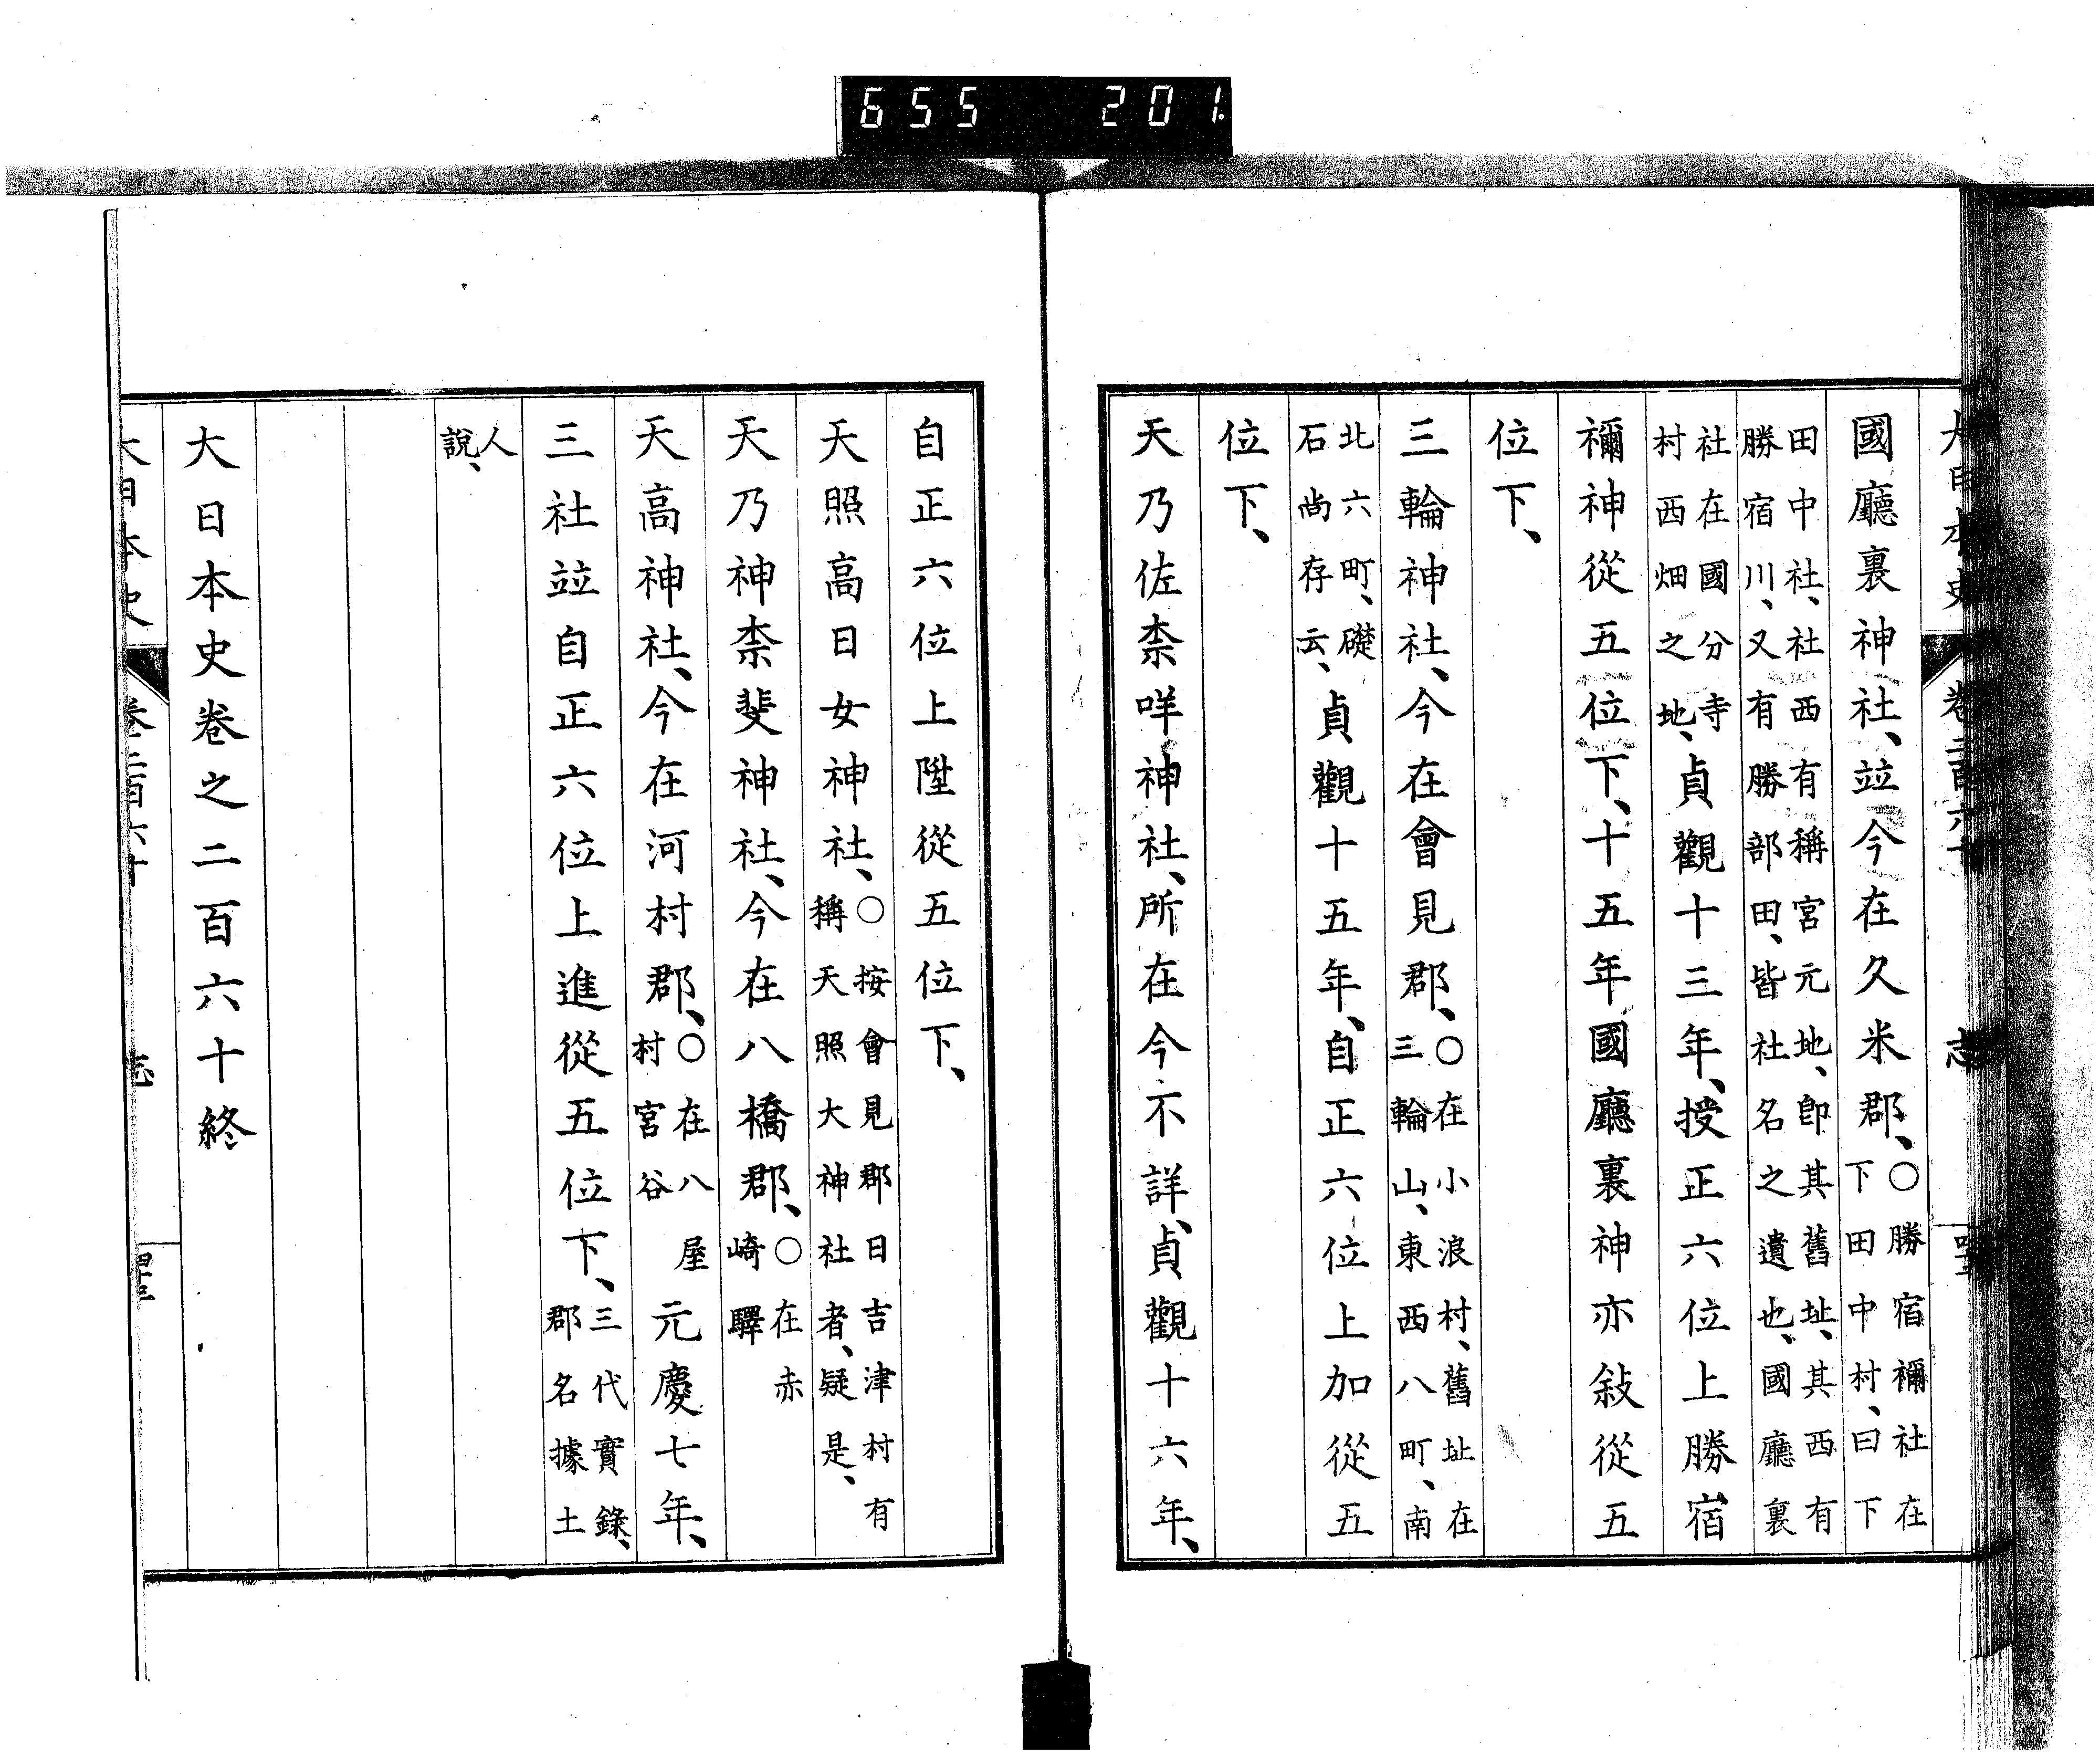 655 201
大日本史 卷二百六十 志
國廳裏神社、竝今在久米郡、○勝宿禰社在下田中村、曰下
田中社、社西有稱宮元地、卽其舊址、其西有勝宿川、又有勝部田、皆社名之遺也、國廳裏
社在國分寺村西畑之地、貞觀十三年、授正六位上勝宿
禰神從五位下、十五年國廳裏神亦敍從五
位下、
三輪神社、今在會見郡、○在小浪村、舊址在三輪山、東西八町、南
北六町、礎石尚存云、貞觀十五年、自正六位上加從五
位下、
天乃佐柰咩神社、所在今不詳、貞觀十六年、
自正六位上陞從五位下、
天照高日女神社、○按會見郡日吉津村有稱天照大神社者、疑是、
天乃神柰斐神社、今在八橋郡、○在赤崎驛
天高神社、今在河村郡、○在八屋村宮谷 元慶七年、
三社竝自正六位上進從五位下、三代實錄、郡名據土
人說、
大日本史卷之二百六十終
大日本史 卷二百六十 志